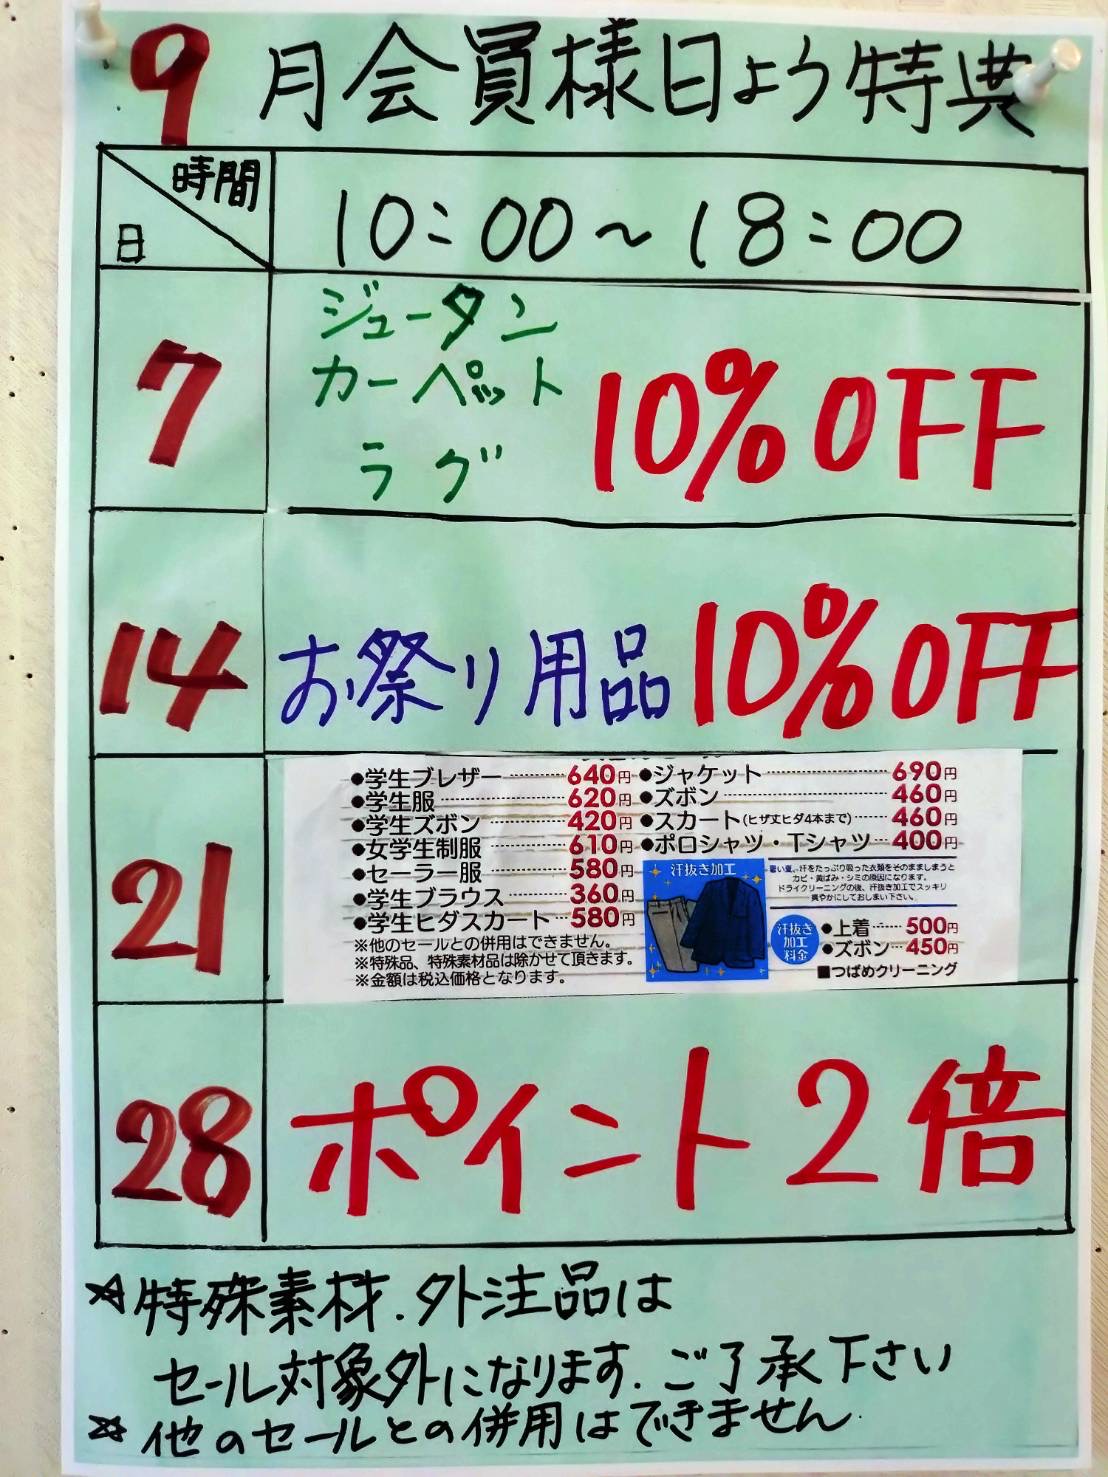 9月会員様日よう特典
時間
日
10:00～18:00
7
ジュータン
カーペット
ラグ
10%OFF
14
お祭り用品 10%OFF
21
●学生ブレザー 640円
●学生服 620円
●学生ズボン 420円
●女学生制服 610円
●セーラー服 580円
●学生ブラウス 360円
●学生ヒダスカート 580円
※他のセールとの併用はできません。
※特殊品、特殊素材品は除かせて頂きます。
※金額は税込価格となります。
●ジャケット 690円
●ズボン 460円
●スカート(ヒザ丈ヒダ4本まで) 460円
●ポロシャツ・Tシャツ 400円
汗抜き加工
暑い夏、汗をたっぷり吸った衣類をそのまましまうと
カビ・黄ばみ・シミの原因になります。
ドライクリーニングの後、汗抜き加工でスッキリ
爽やかにしておしまい下さい。
汗抜き
加工
料金
●上着 500円
●ズボン 450円
■つばめクリーニング
28
ポイント2倍
☆特殊素材.外注品は
セール対象外になります.ご了承下さい
☆他のセールとの併用はできません